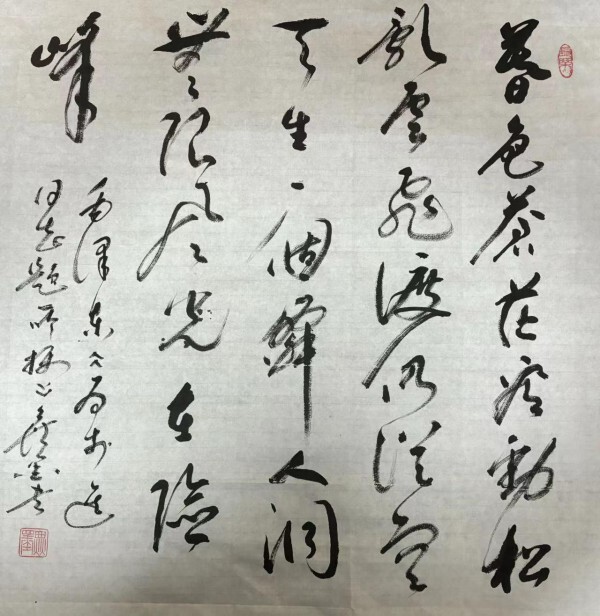 暮色蒼茫看勁松
亂雲飛渡仍從容
天生一個僊人洞
無限風光在險
峰
毛澤東《为李進
同志題所攝》墨书